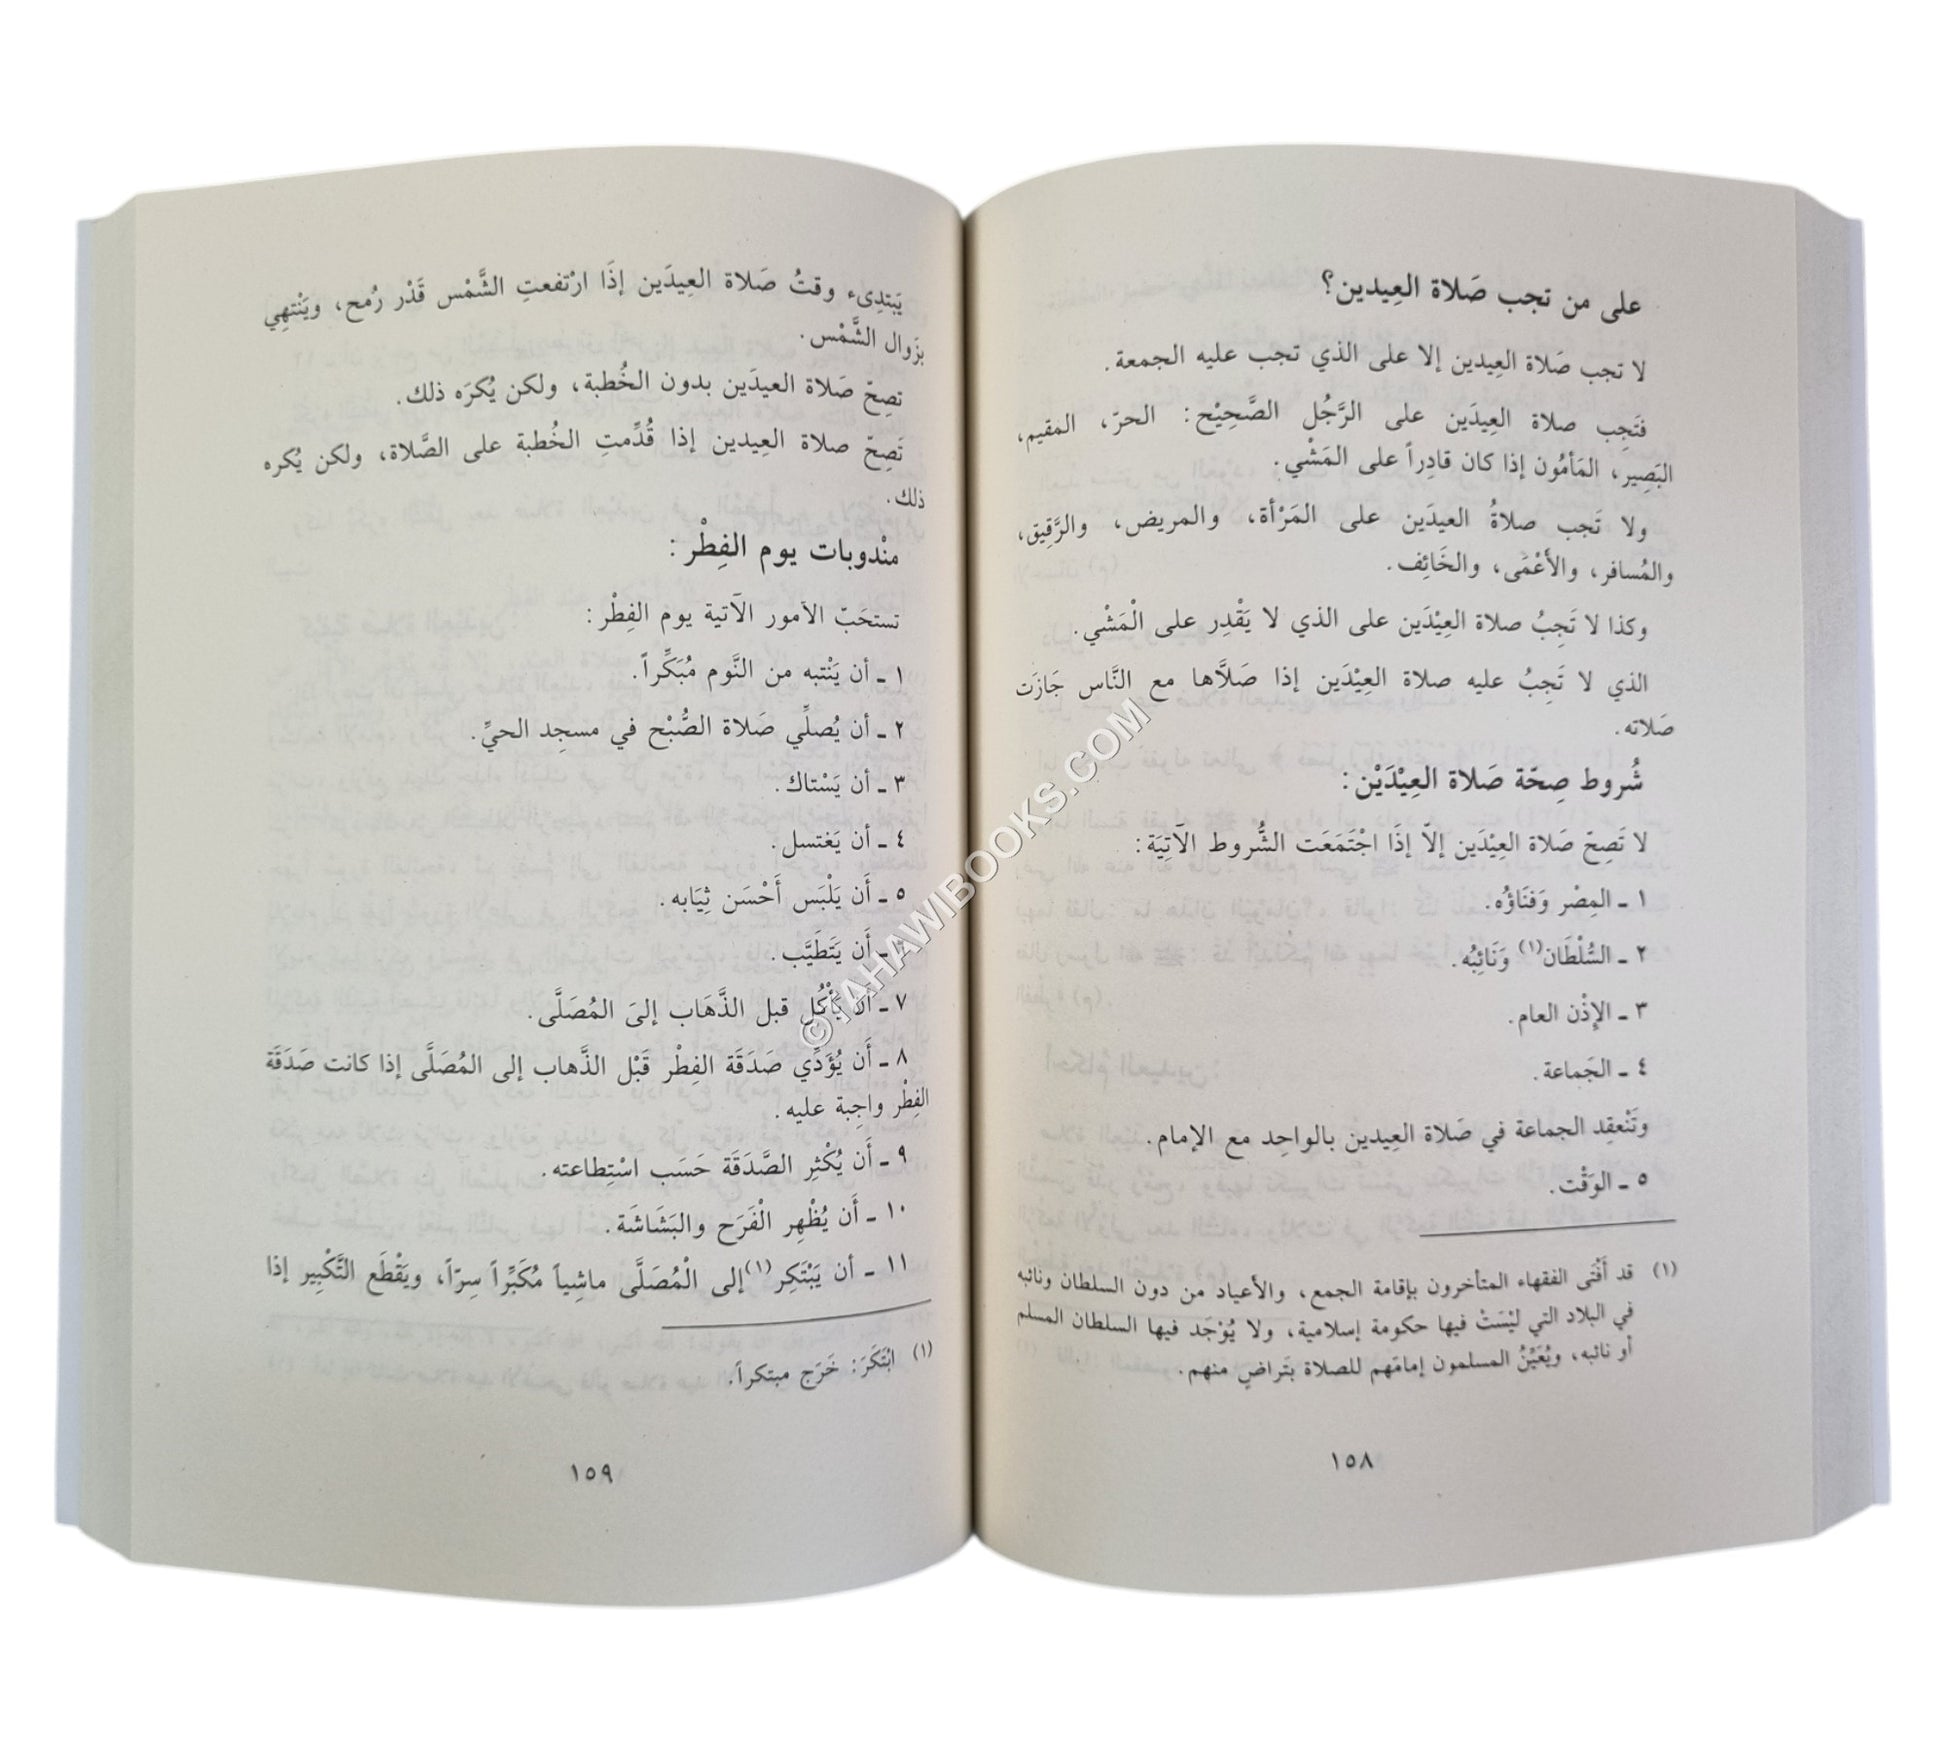 على من تجب صَلاة العِيدين؟
لا تجب صَلاة العِيدين إلا على الذي تجب عليه الجمعة.
فتَجِب صلاة العِيدَين على الرَّجُل الصَّحِيْح: الحرّ، المقيم،
البَصِير، المَأمُون إذا كان قادِراً على المَشْي.
ولا تَجب صلاةُ العيدَين على المَرْأة، والمريض، والرَّقِيق،
والمُسافر، والأعْمَى، والخَائِف.
وكذا لا تَجِبُ صلاة العِيْدَين على الذي لا يَقْدِر على الْمَشْي.
الذي لا تَجِبُ عليه صلاة العِيْدَين إذا صَلَّاها مع النَّاس جَازَت
صَلاته.
شُروط صِحّة صَلاة العِيْدَيْن:
لا تَصِحّ صَلاة العِيْدَين إلاّ إذَا اجْتَمَعَت الشُّروط الآتِيَة:
١ ـ المِصْر وَفنَاؤُه.
٢ ـ السُّلْطَان(١) وَنَائِبُه.
٣ ـ الإِذْن العام.
٤ ـ الجَماعة.
وتَنْعقِد الجماعة في صَلاة العِيدين بالواحِد مع الإمام.
٥ ـ الوَقْت.
(١) قد أَفْتَى الفقهاء المتأخرون بإقامة الجمع، والأعياد من دون السلطان ونائبه
في البلاد التي ليْسَتْ فيها حكومة إسلامية، ولا يُوْجَد فيها السلطان المسلم
أو نائبه، ويُعَيِّنُ المسلمون إمامَهم للصلاة بتَراضٍ منهم.
١٥٨
يَبتدِىء وقتُ صَلاة العِيدَين إذَا ارْتفعتِ الشَّمْس قَدْر رُمح، ويَنْتهِي
بزَوال الشَّمْس.
تصِحّ صَلاة العيدَين بدون الخُطبة، ولكن يُكرَه ذلك.
تَصِحّ صلاة العِيدين إذا قُدِّمتِ الخُطبة على الصَّلاة، ولكن يُكره
ذلك.
منْدوبات يوم الفِطْر:
تستحَبّ الأمور الآتية يوم الفِطْر:
١ ـ أن يَنْتبه من النَّوم مُبَكِّراً.
٢ ـ أن يُصلِّي صَلاة الصُّبْح في مسجِد الحيِّ.
٣ ـ أن يَسْتاك.
٤ ـ أن يَغتسل.
٥ ـ أَن يَلْبَس أَحْسَن ثِيَابه.
٦ ـ أَن يَتَطَيَّب.
٧ ـ أَن يَأْكُل قبل الذَّهَاب إلىَ المُصَلَّى.
٨ ـ أَن يُؤَدِّي صَدَقَة الفِطْر قَبْل الذَّهاب إلى المُصَلَّى إذا كانت صَدَقَة
الفِطْر واجِبة عليه.
٩ ـ أَن يُكْثِر الصَّدَقَة حَسَب اسْتِطاعته.
١٠ ـ أَن يُظْهِر الْفَرَح والبَشَاشَة.
١١ ـ أن يَبْتَكِر(١) إلى الْمُصَلَّى ماشِياً مُكَبِّراً سِرّاً، ويَقْطَع التَّكْبِير إذا
(١) ابْتَكَرَ: خَرَج مبتكراً.
١٥٩
©TAHAWIBOOKS.COM